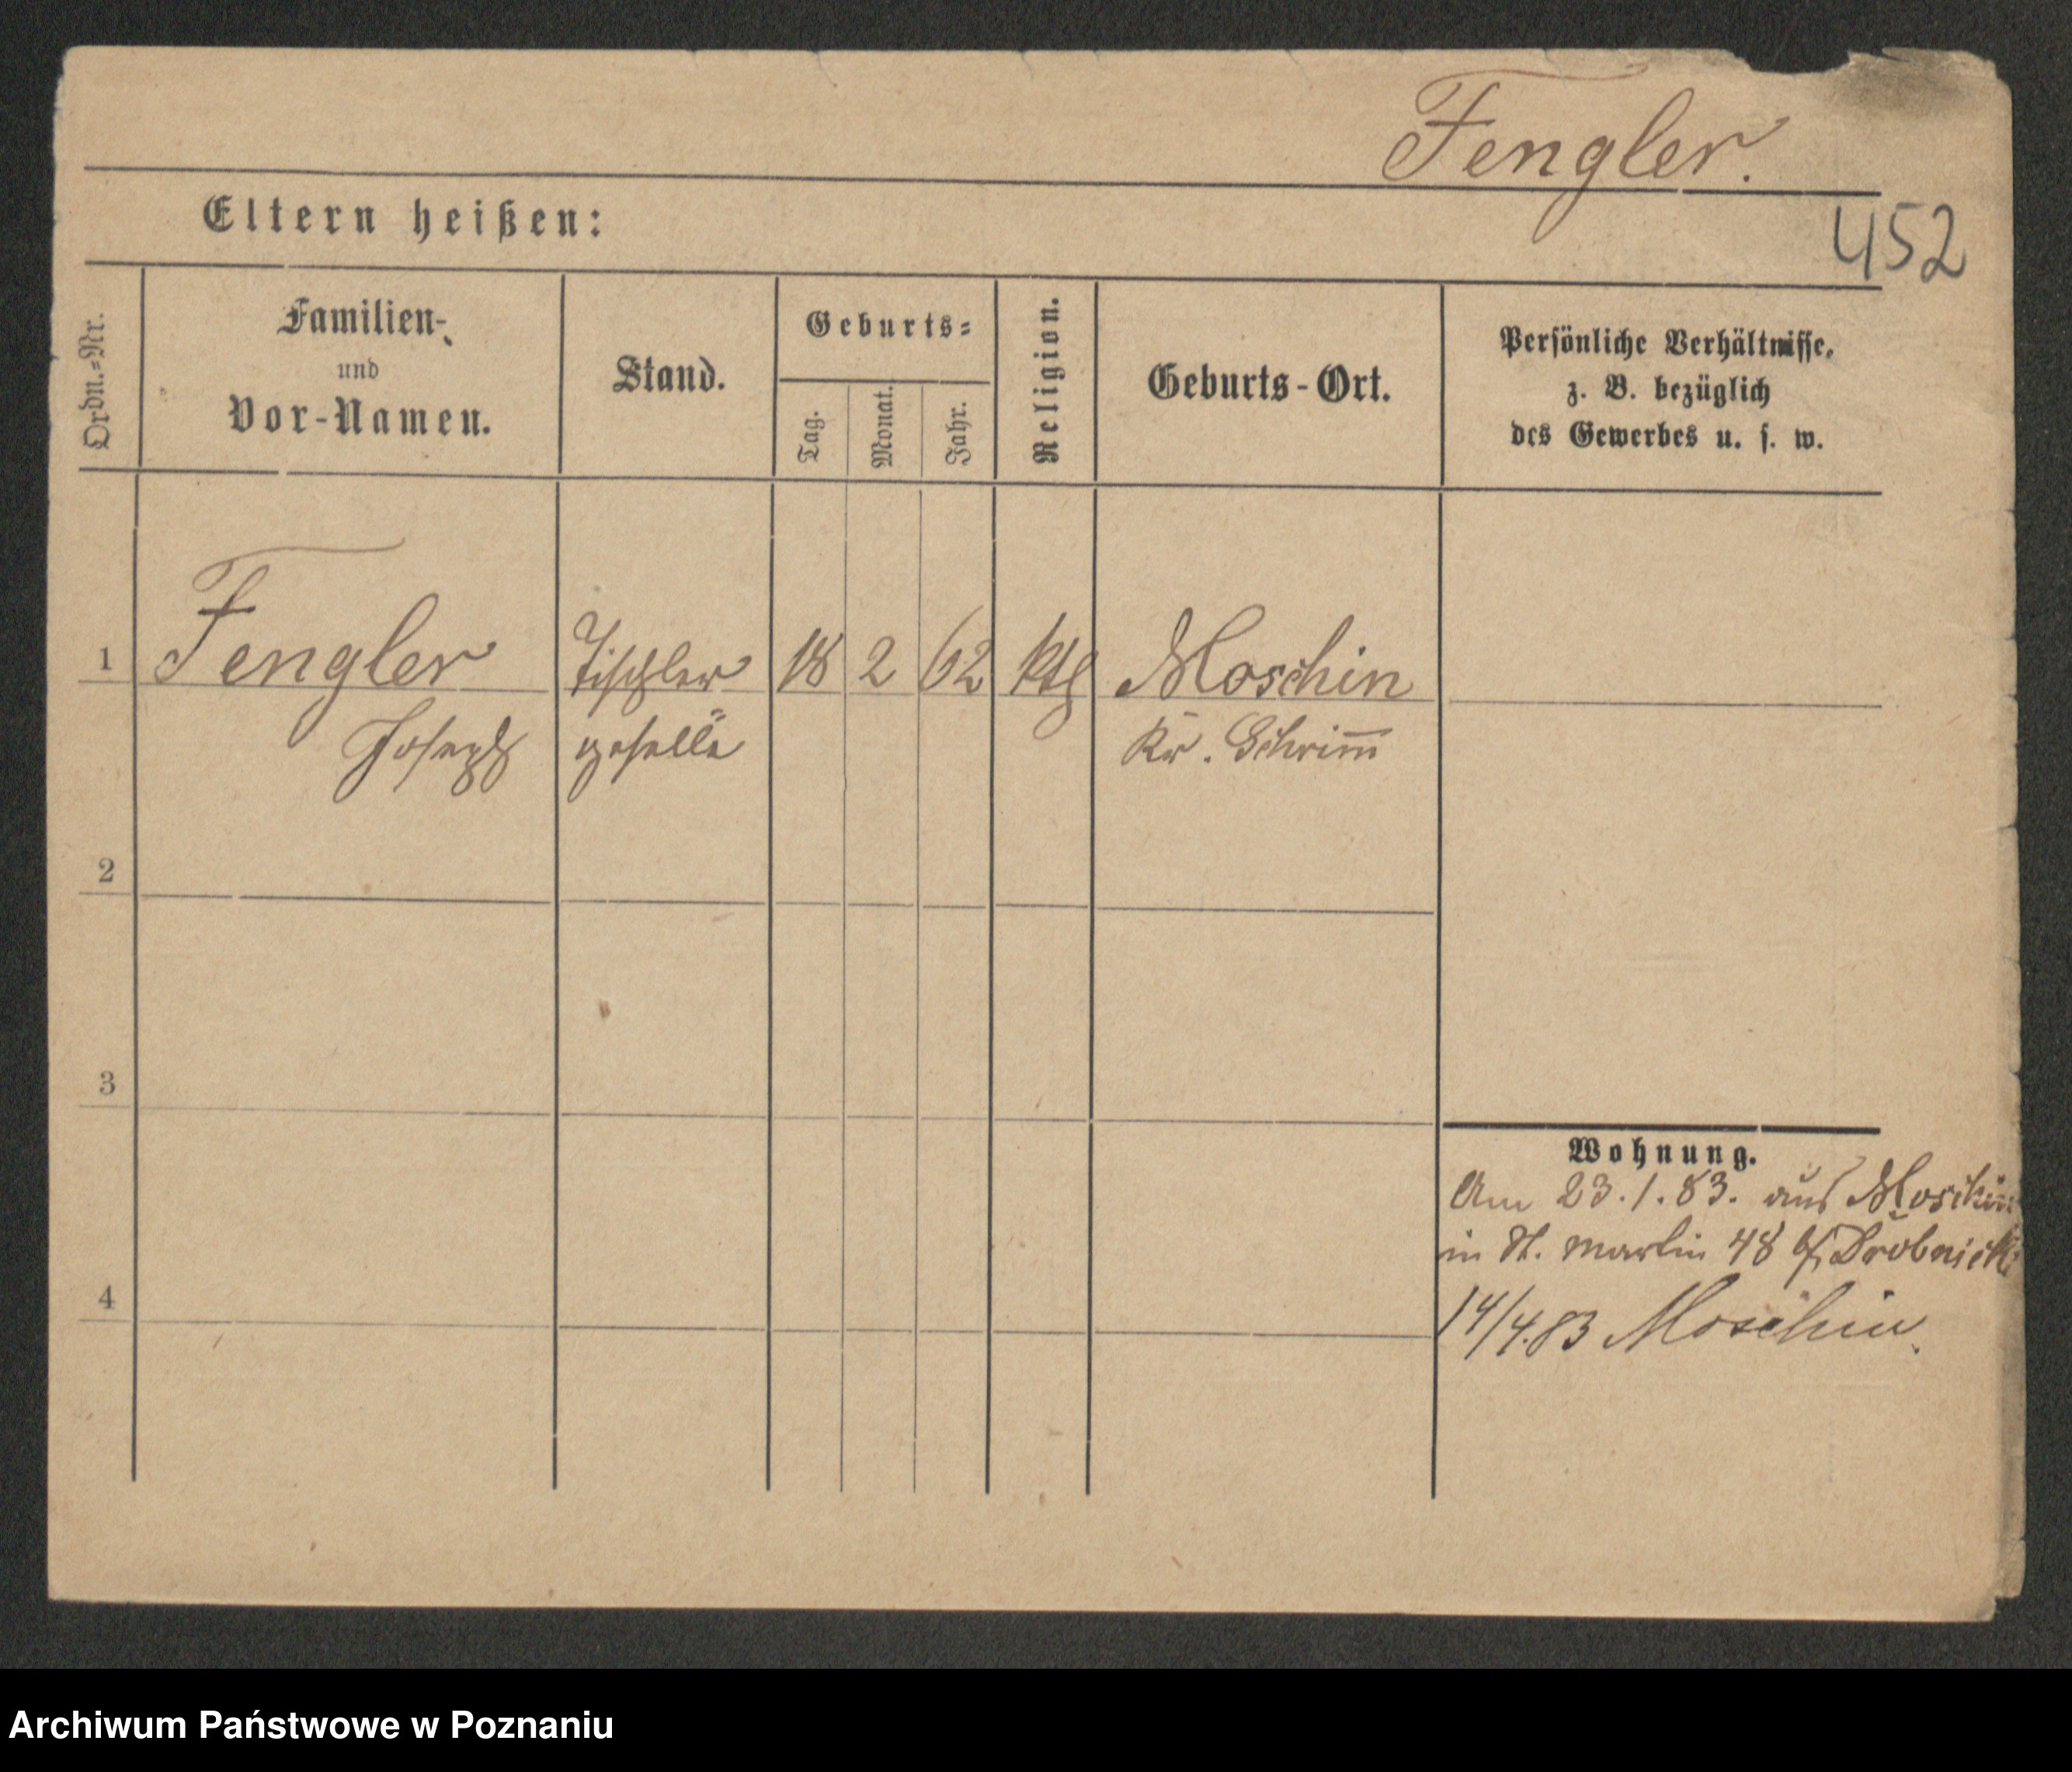 Fengler.
452
Eltern heißen:
Ordn.=Nr.
Familien-
und
Vor-Namen.
Stand.
Geburts=
Tag.
Monat.
Jahr.
Religion.
Geburts-Ort.
Persönliche Verhältnisse,
z. B. bezüglich
des Gewerbes u. s. w.
1 Fengler Tischler 18 2 62 kth Moschin
Joseph geselle Kr. Schrim̅
2
3
4
Wohnung.
Am 23.1.83. aus Moschin
in St. Martin 48 b/ Drobnick
14/4.83 Moschin.
Archiwum Państwowe w Poznaniu